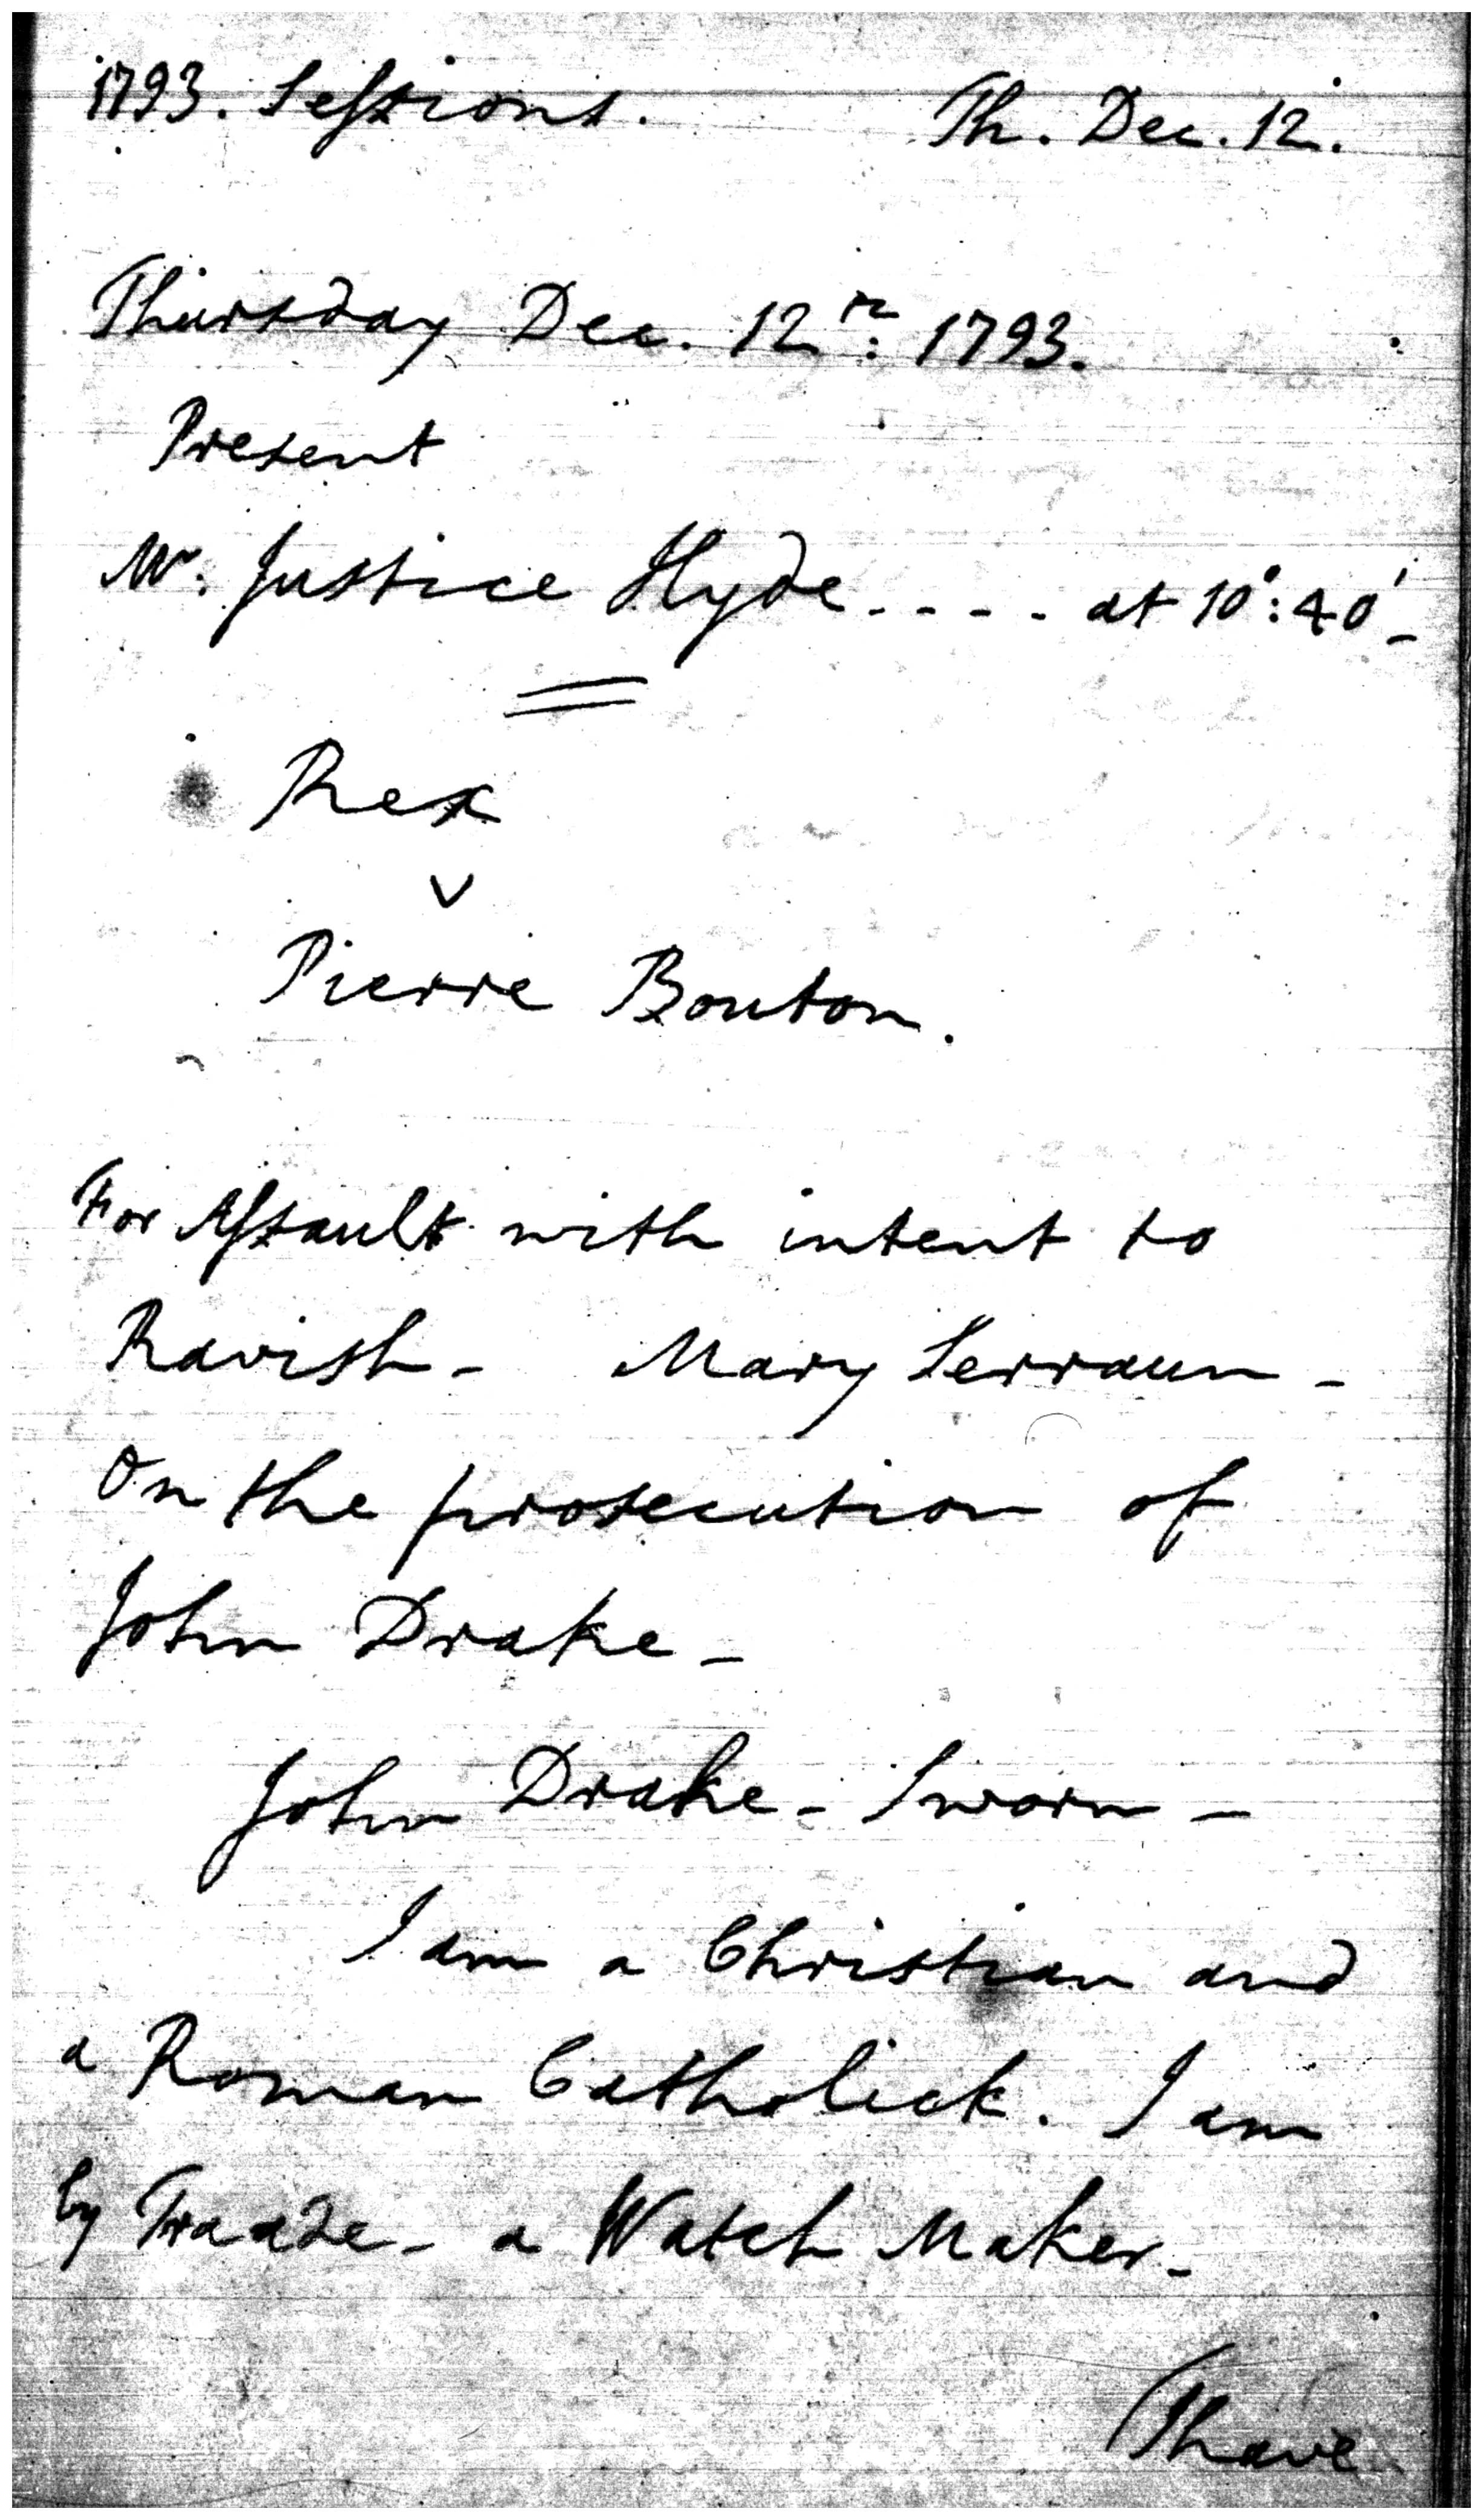 1793. Sessions. Th. Dec. 12.
Thursday Dec. 12th: 1793.
Present
Mr. Justice Hyde - - - - at 10°: 40' -
Rex
v
Pierre Bouton.
For Assault with intent to
Ravish - Mary Serraun -
On the prosecution of
John Drake -
John Drake - Sworn -
I am a Christian and
a Roman Catholick. I am
by Traade - a Watch Maker -
I have